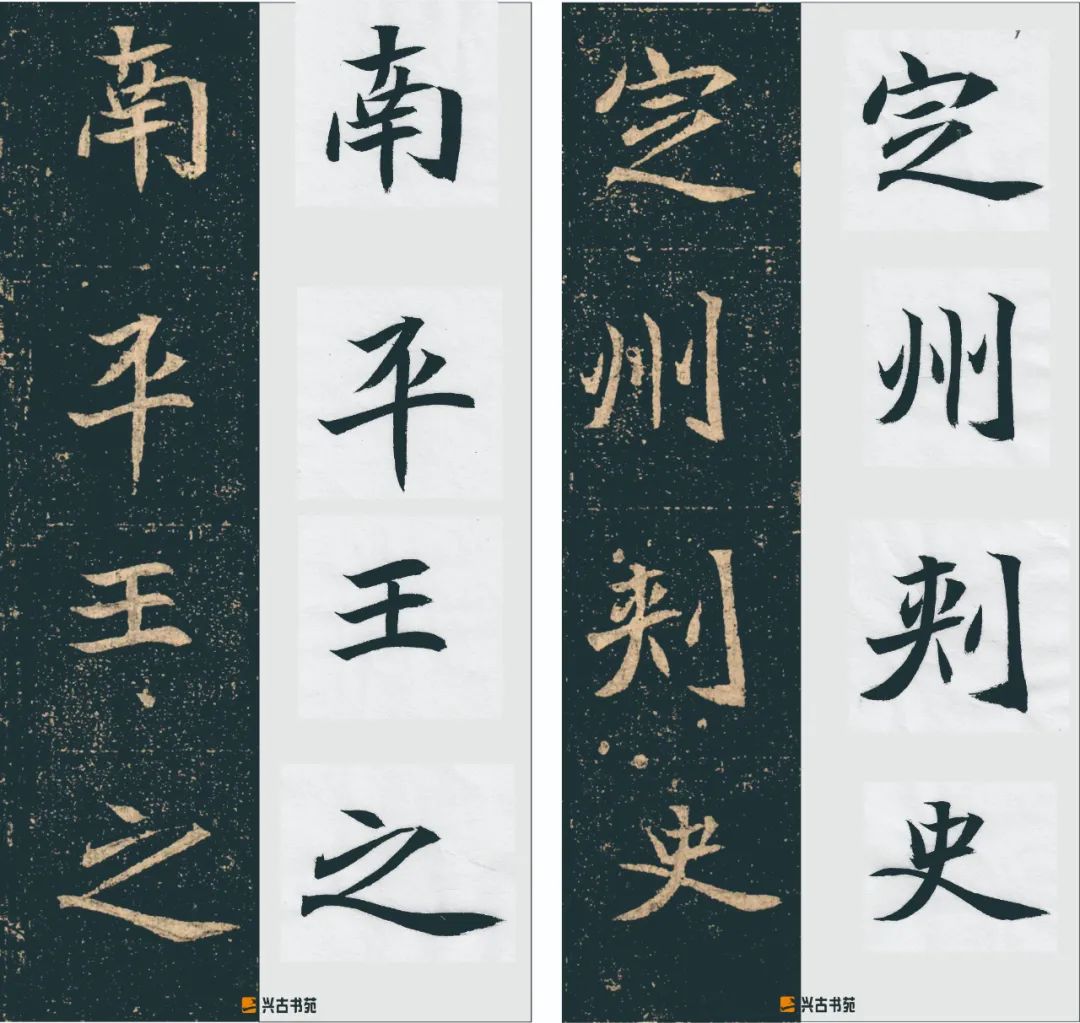 南平王之
南平王之
兴古书苑
定州刾史
定州刾史
兴古书苑